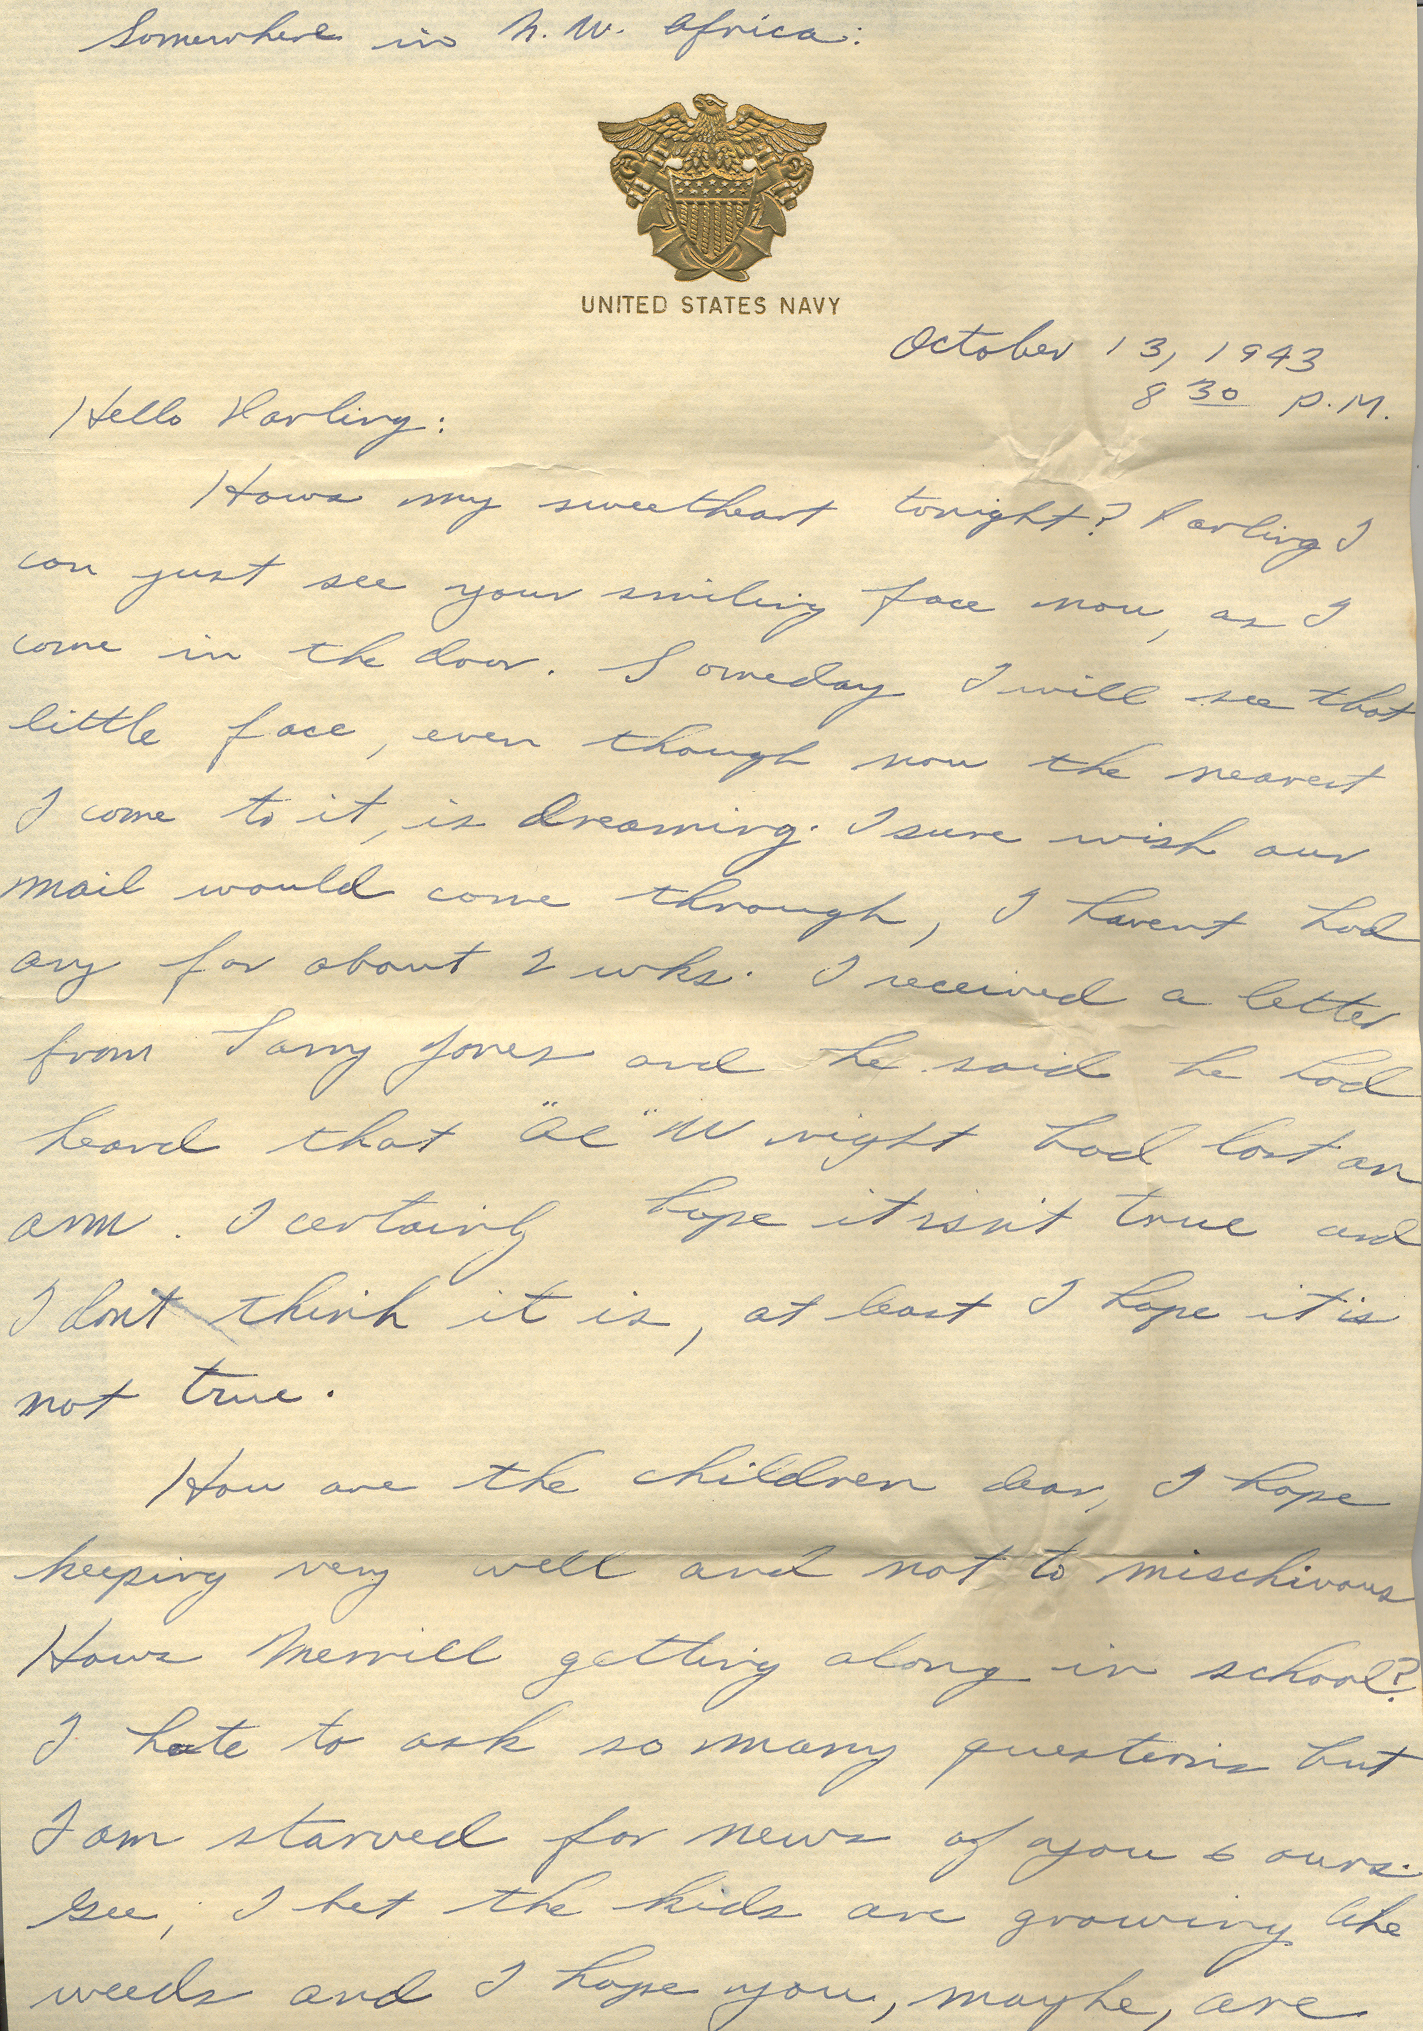 Somewhere in N. W. Africa:
UNITED STATES NAVY
October 13, 1943
8 30 P.M.
Hello Darling:
Hows my sweetheart tonight? Darling I
can just see your smiling face now, as I
come in the door. Someday I will see that
little face, even though now the nearest
I come to it, is dreaming. I sure wish our
mail would come through, I havent had
any for about 2 wks. I received a letter
from Jones and he said he had
heard that "Al" Wright had lost an
arm. I certainly hope it isn't true and
I dont think it is, at least I hope it is
not true.
How are the children dear, I hope
keeping very well and not to mischivous
Hows Merrill getting along in school?
I hate to ask so many questions but
I am starved for news of you & ours.
Gee, I bet the kids are growing like
weeds and I hope you, maybe, are